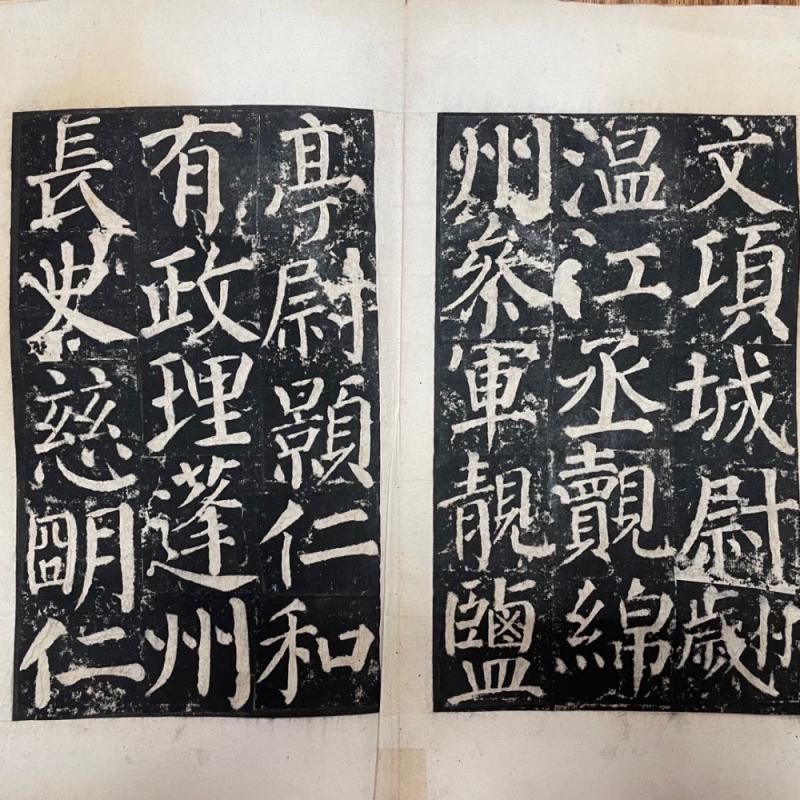 文項城尉翽
温江丞覿綿
州參軍靚鹽
亭尉顥仁和
有政理蓬州
長史慈朙仁